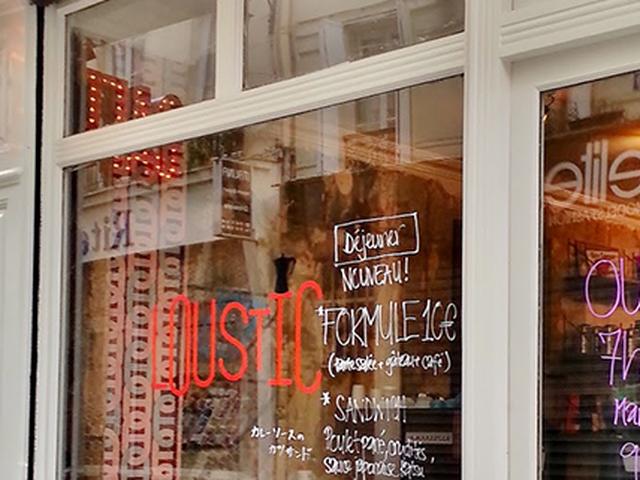 Déjeuner
NOUVEAU!
LOUSTIC
*FORMULE 10€
(tarte salée + gâteau + café)
* SANDWICH
カレーソースの
カツサンド
Poulet pané, crudités,
sauce japonaise
elite
OU
7h
Mar
9h